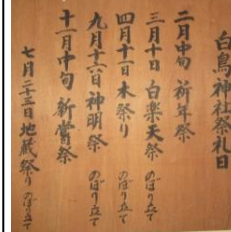 白鳥神社祭礼日
二月中旬 祈年祭
三月十日 白楽天祭 のぼり立て
四月十一日 水祭り のぼり立て
九月十六日 神明祭 のぼり立て
十一月中旬 新嘗祭
七月二十三日 地蔵祭り のぼり立て